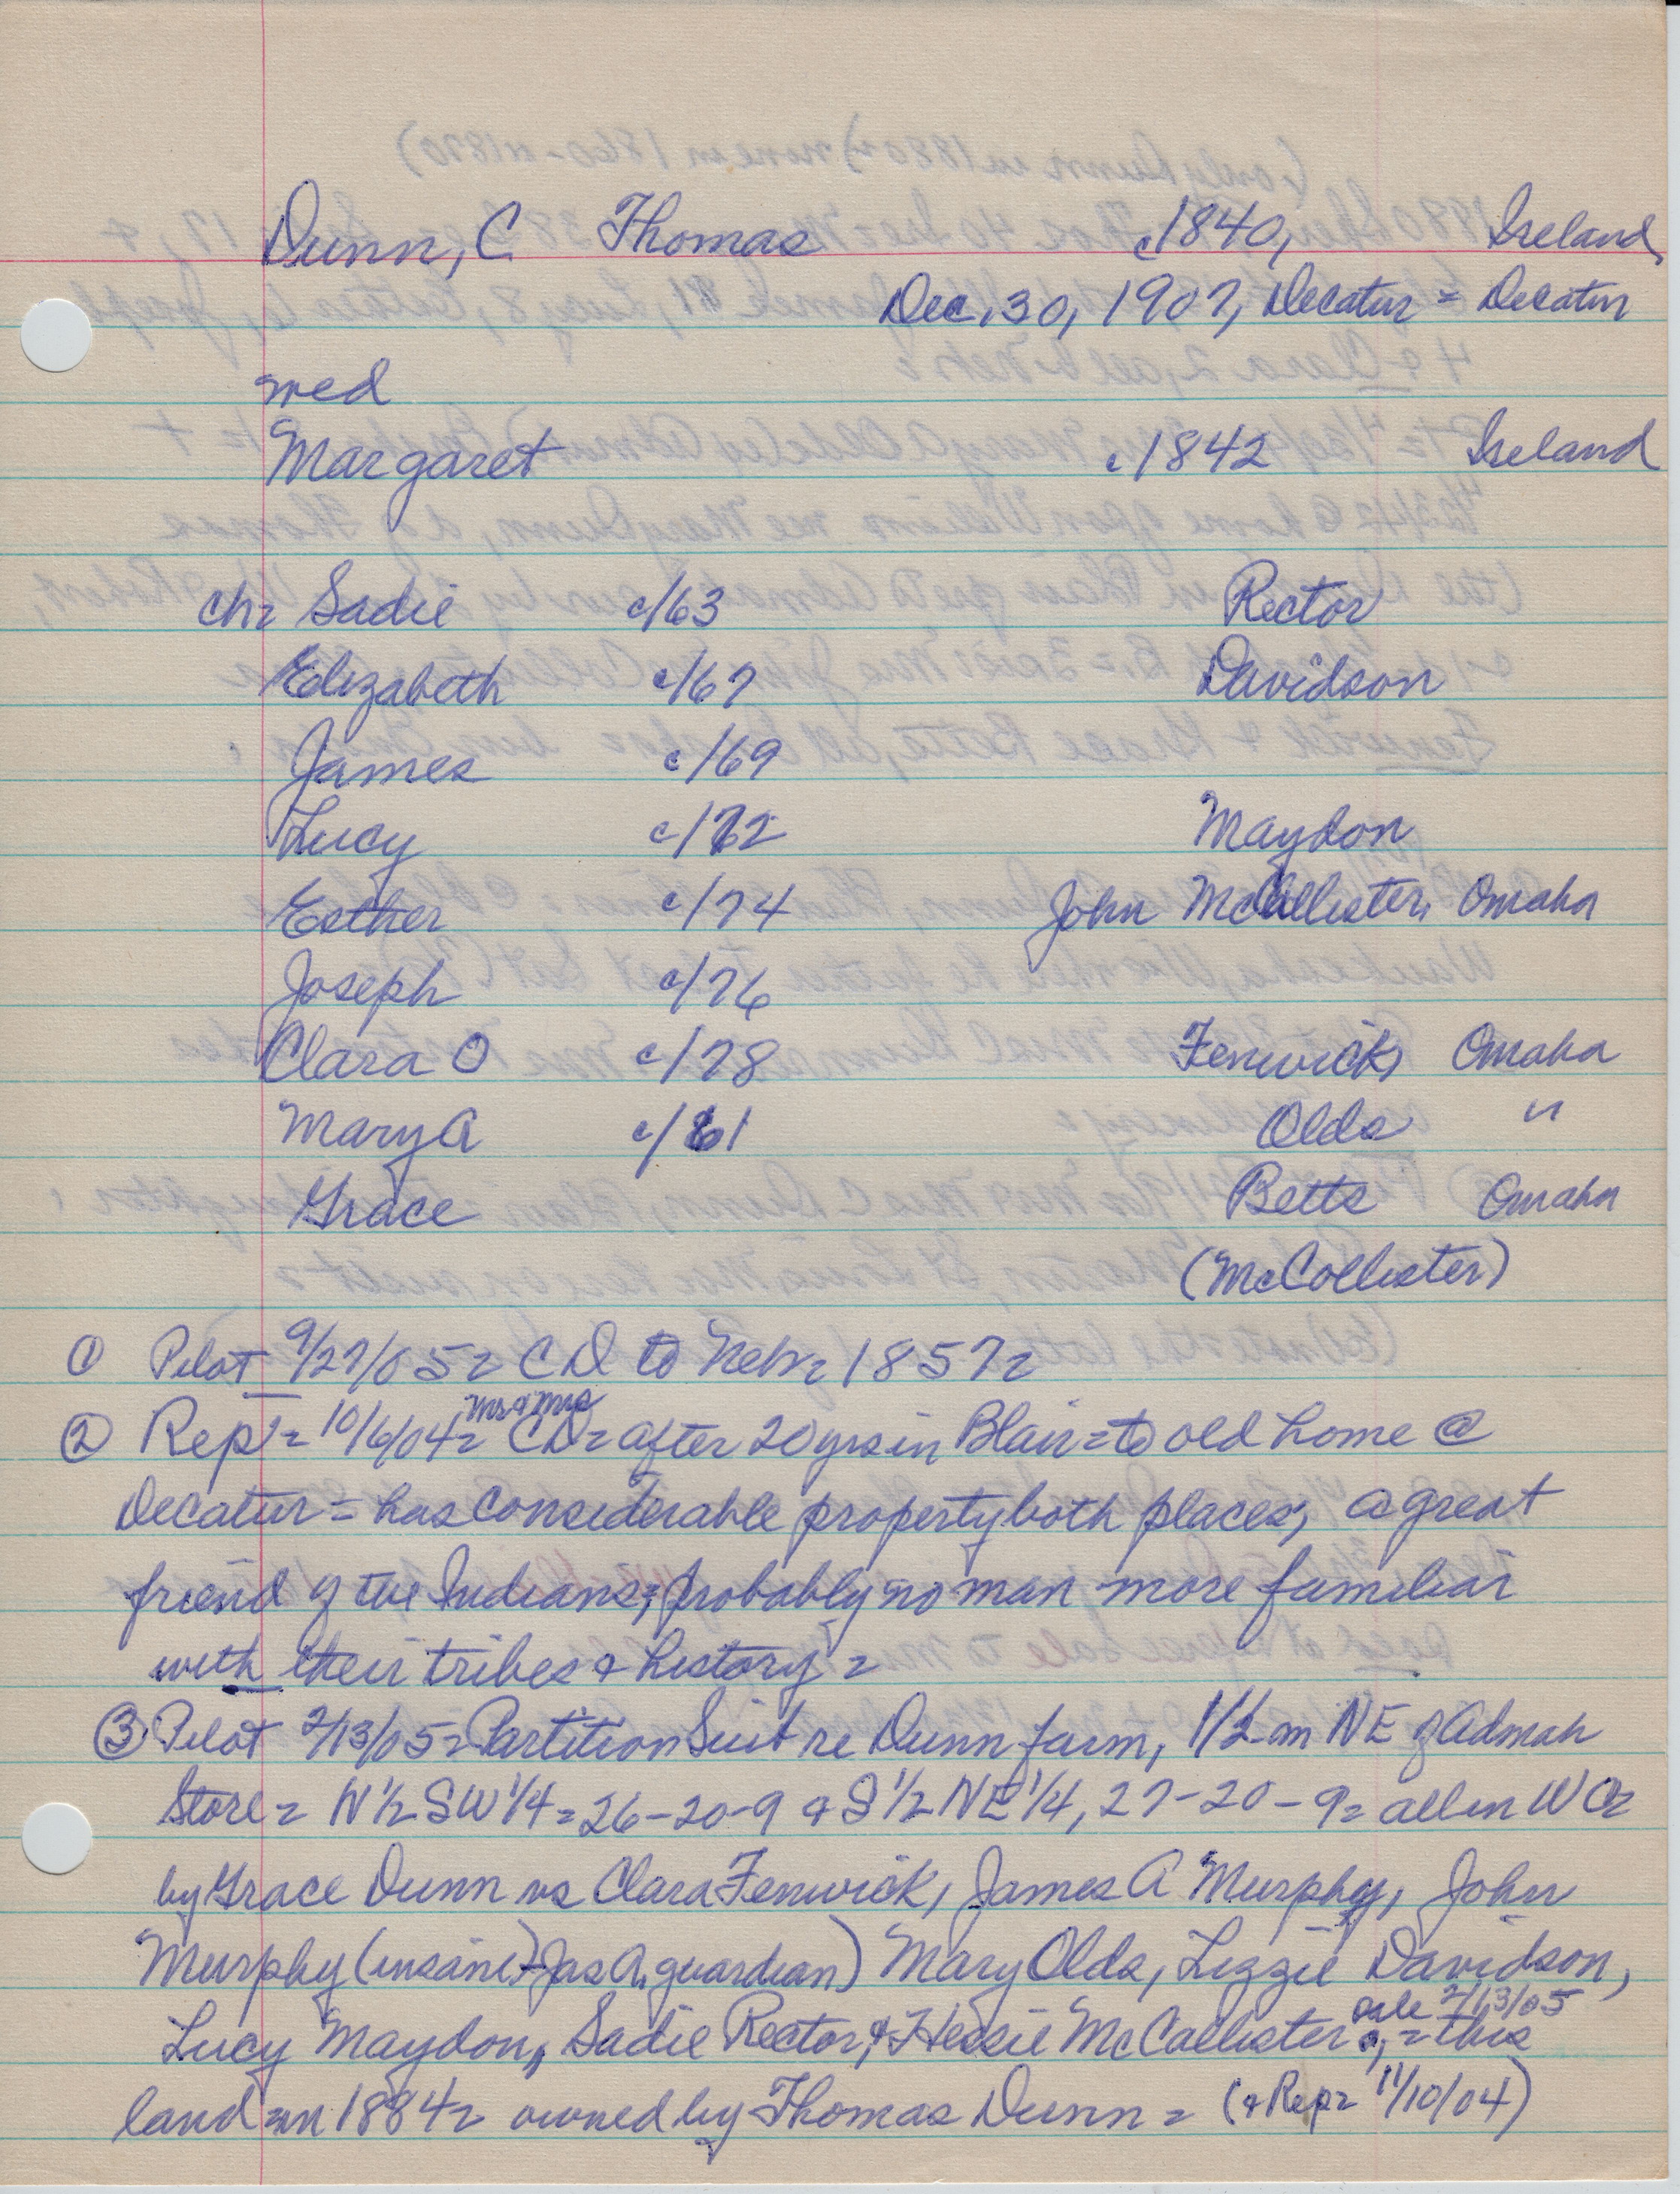 Dunn, C Thomas c1840, Ireland
Dec. 30, 1907, Decatur = Decatur
med
Margaret c1842 Ireland
ch= Sadie c/63 Rector
Elizabeth c/67 Davidson
James c/69
Lucy c/72 Maydon
Esther c/74 John McCollister, Omaha
Joseph c/76
Clara O c/78 Fenwick, Omaha
Mary A c/61 Olds "
Grace Betts Omaha
(McCollister)
① Pilot 9/27/05= CD to Nebr= 1857=
② Rep'= 10/6/04= Mr & Mrs CD= after 20 yrs in Blair= to old home @
Decatur = has considerable property both places; a great
friend of the Indians; probably no man more familiar
with their tribes & history =
③ Pilot 2/13/05= Partition Suit re Dunn farm, 1/2 m NE of Admah
Store= W 1/2 SW 1/4= 26-20-9 & S 1/2 NE 1/4, 27-20-9= all in WC=
by Grace Dunn vs Clara Fenwick, James A Murphy, John
Murphy (insane)-Jas A, guardian) Mary Olds, Lizzie Davidson,
Lucy Maydon, Sadie Rector, & Hessie McCallister, sale 2/13/05 = this
land in 1884= owned by Thomas Dunn = (& Rep= 11/10/04)